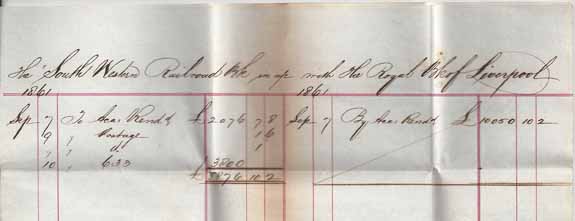 The South Western Railroad Bk in a/c with the Royal Bk of Liverpool
1861 1861
Sep 7 To Acc. Rend.d £ 2076 7 8 Sep 7 By Acc. Rend.d £ 10050 10 2
9 " Postage 1 6
" " do 1
10 " 633 3800
£ 5876 10 2